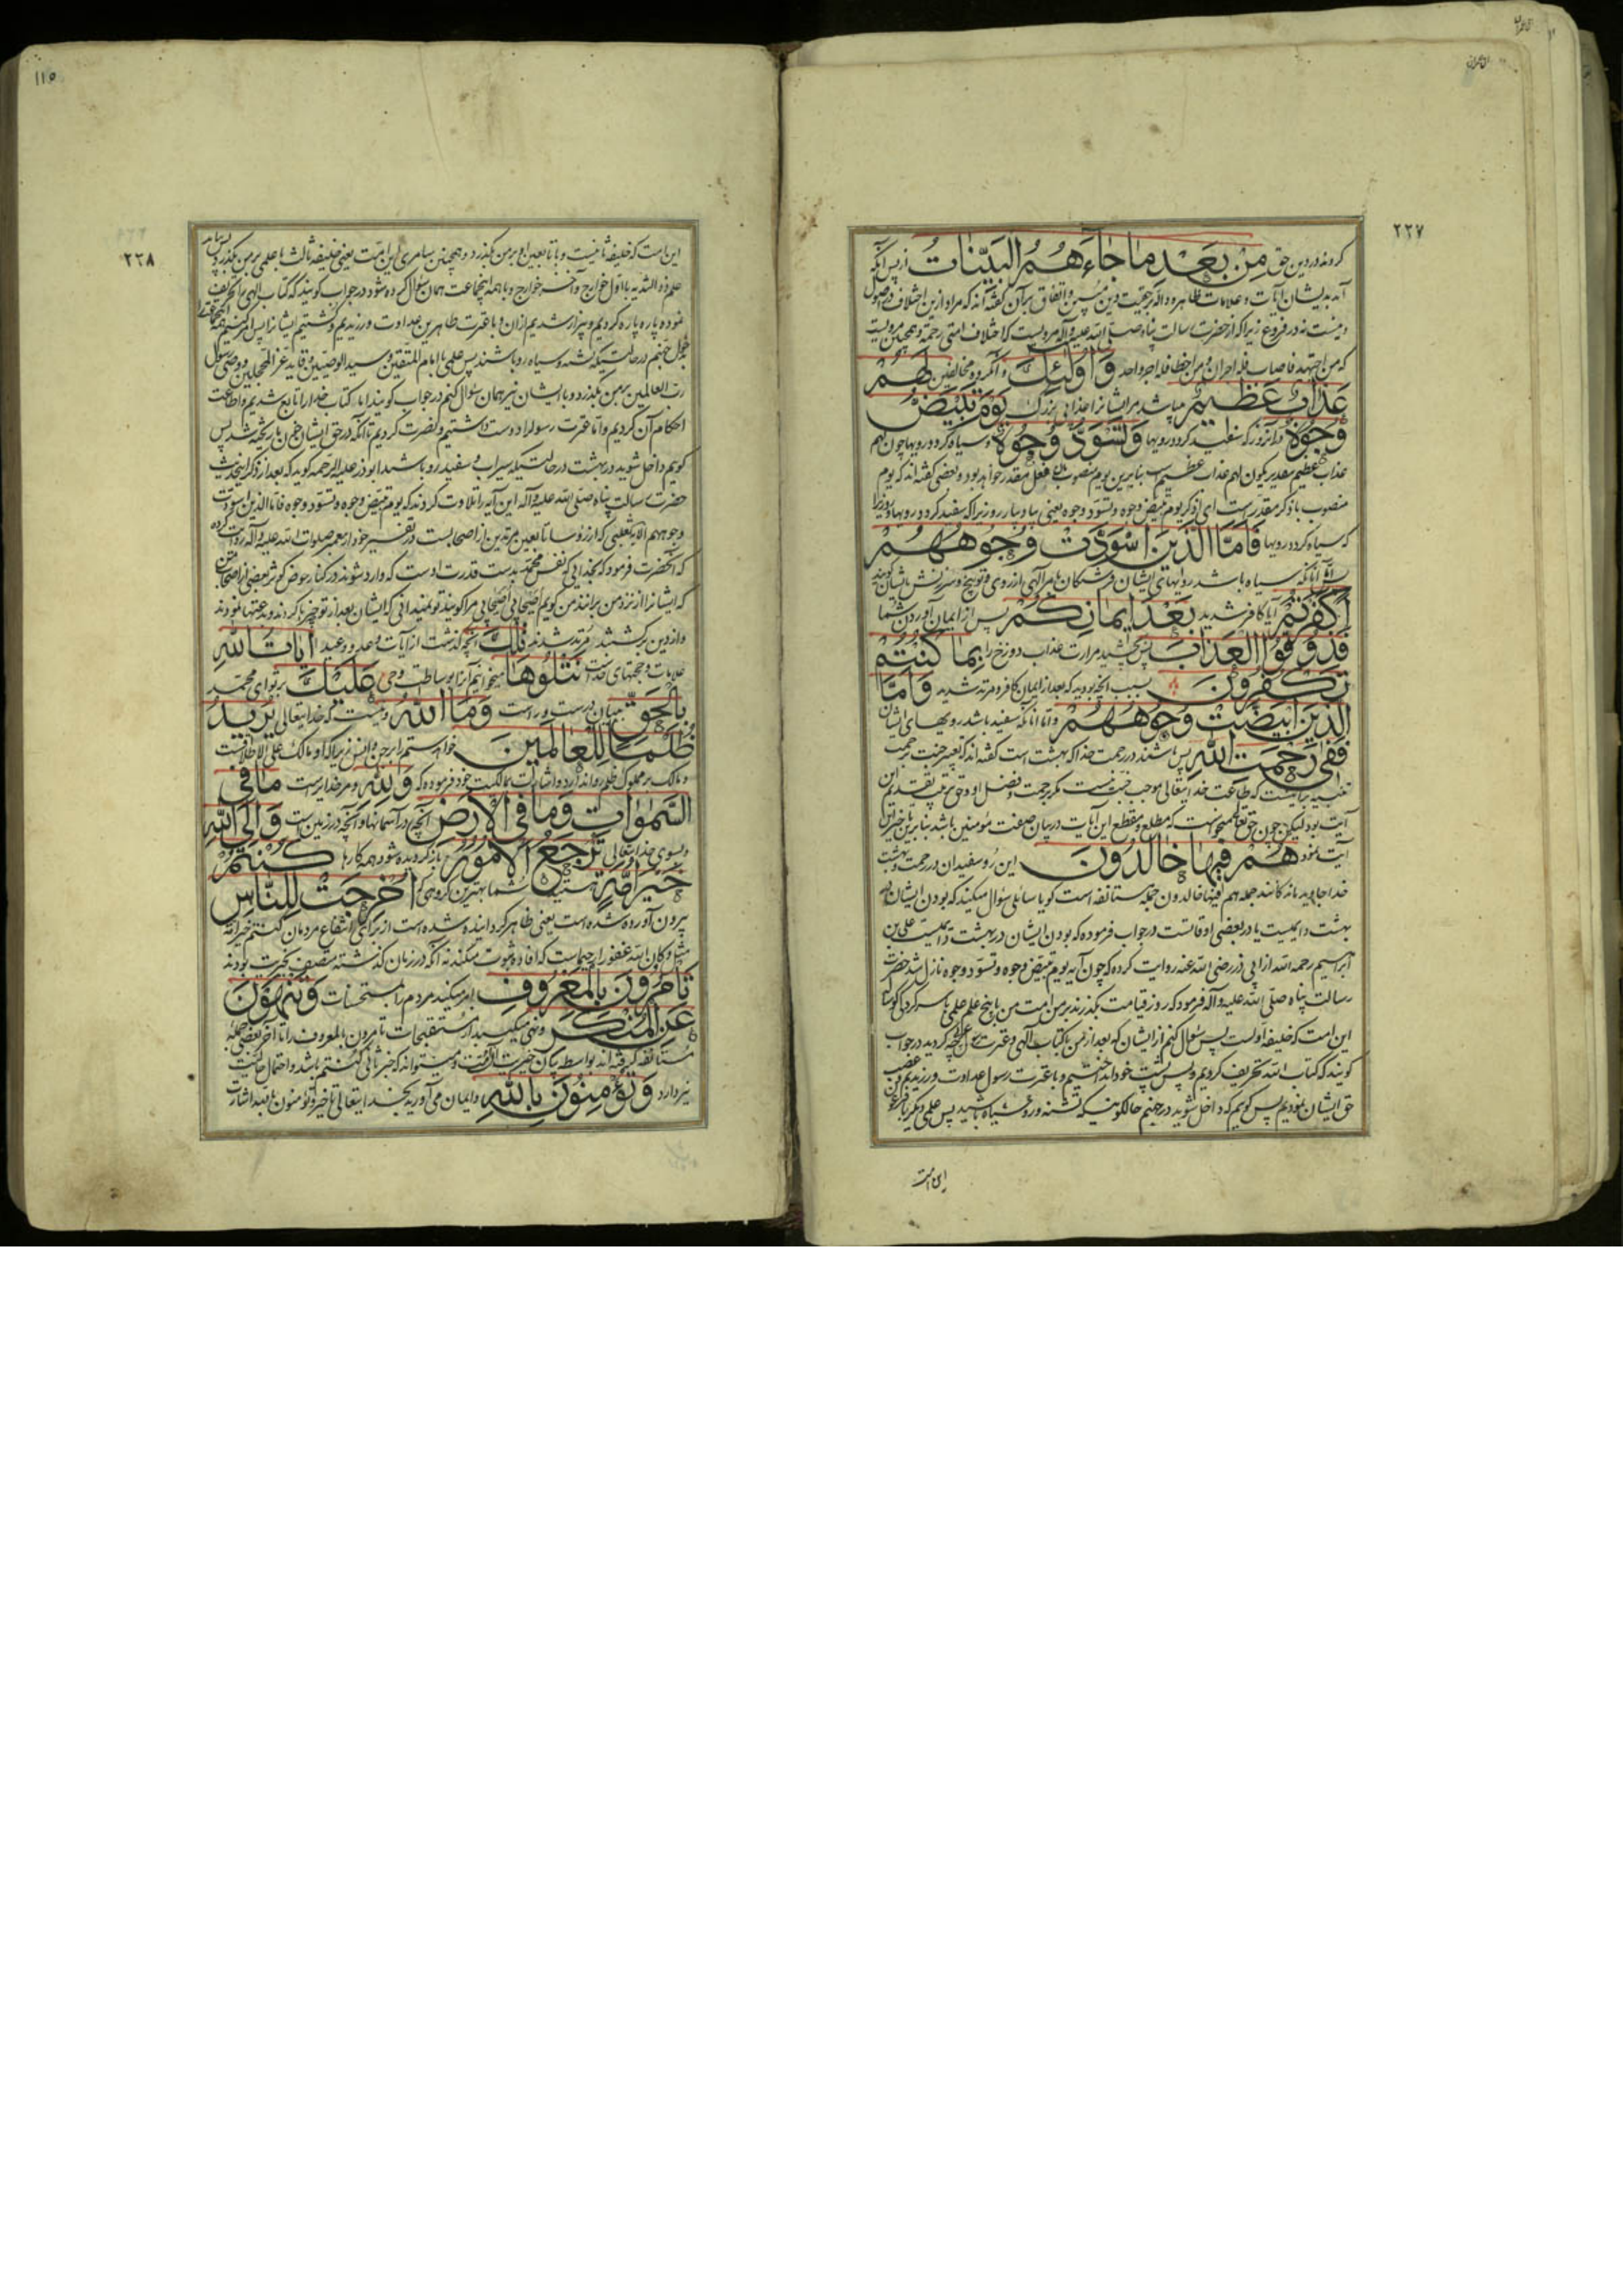 ۲۲۷
کردند در دین حق مِنْ بَعْدِ مَا جَاءَهُمُ الْبَیِّنَاتُ از پس آنکه
آمد بدیشان آیات و علامات ظاهره داله بر حقیت دین و اتفاق بر آن گفته‌اند که مراد ازین اختلاف در اصول
دینست نه در فروع زیرا که از حضرت رسالت پناه صلی الله علیه وآله مرویست که اختلاف امتی رحمة و همچنین مرویست
که من اجتهد فاصاب فله اجران و من اخطا فله اجر واحد وَاُولٰئِكَ و آنگروه مخالفین لَهُمْ
عَذَابٌ عَظِیمٌ میباشد مر ایشانرا عذابی بزرگ یَوْمَ تَبْیَضُّ
وُجُوهٌ در آنروز که سفید گردد رویها وَتَسْوَدُّ وُجُوهٌ و سیاه گردد رویها چون لهم
عذاب عظیم بتقدیر یکون لهم عذاب عظیم است بنابرین یوم منصوب به فعل مقدر خواهد بود و بعضی گفته‌اند که یوم
منصوب باذکر مقدرست ای اذکر یوم تبیض وجوه وتسود وجوه یعنی بیاد بیار روزیرا که سفید گردد رویها و روزیرا
که سیاه گردد رویها فَاَمَّا الَّذِینَ اسْوَدَّتْ وُجُوهُهُمْ
پس اما آنانکه سیاه باشد رویهای ایشان فرشتگان بامر الهی از روی توبیخ و سرزنش بایشان گویند
اَكَفَرْتُمْ آیا کافر شدید بَعْدَ اِیمَانِكُمْ پس از ایمان آوردن شما
فَذُوقُوا الْعَذَابَ پس بچشید مرارت عذاب دوزخ را بِمَا كُنْتُمْ
تَكْفُرُونَ بسبب آنچه بودید که بعد از ایمان کافر و مرتد شدید وَاَمَّا
الَّذِینَ ابْیَضَّتْ وُجُوهُهُمْ و اما آنانکه سفید باشد رویهای ایشان
فَفِی رَحْمَتِ اللّٰهِ پس باشند در رحمت خدا که بهشت است گفته‌اند که تعبیر جنت برحمت
تنبیه برآنست که طاعت خدایتعالی موجب جنت نیست مگر برحمت و فضل او و حق ترتیب تقدیم این
آیت بود لیکن چون حق تعالی میخواست که مطلع و مقطع این آیات در بیان صفت مؤمنین باشد بنابرین تاخیر این
آیت نمود هُمْ فِیهَا خَالِدُونَ این رو سفیدان در رحمت و بهشت
خدا جاوید مانندگانند جمله هم فیها خالدون جمله مستانفه است گویا سائلی سؤال میکند که بودن ایشان در
بهشت دایمیست یا در بعضی اوقاتست در جواب فرموده که بودن ایشان در بهشت دایمیست علی بن
ابراهیم رحمه الله از ابی ذر رضی الله عنه روایت کرده که چون آیه یوم تبیض وجوه و تسود وجوه نازل شد حضرت
رسالت پناه صلی الله علیه وآله فرمود که روز قیامت بگذرند بر من امت من با پنج علم علمی با
این امت که خلیفه اولست پس سؤال کنم از ایشان که بعد از من با کتاب الهی و عترت رسول چه کردید در جواب
گویند که کتاب الله تحریف کردیم و پس پشت خود انداختیم و با عترت رسول عداوت ورزیدیم و غصب
حق ایشان نمودیم پس گویم که داخل شوید در جهنم حالکونیکه تشنه و رو سیاه باشید پس علمی دیگر با
این امت
۱۱۵
۲۲۸
این امت که خلیفه ثانیست و با تابعین او بر من بگذرد و همچنین سامری این امت یعنی خلیفه ثالث با علمی بر من بگذرد پس بیاید
علم ذو الثدیه با اول خوارج و آخر خوارج و با همه اینجماعت همان سؤال کرده شود در جواب گویند که کتاب الهی را تحریف
نموده پاره پاره کردیم و بیزار شدیم ازان و با عترت طاهرین عداوت ورزیدیم و کشتیم ایشانرا پس امر کنیم همه
بدخول جهنم در حالتیکه تشنه و سیاه رو باشند پس علمی با امام المتقین و سید الوصیین و قاید غر المحجلین و وصی رسول
رب العالمین بر من بگذرد و با ایشان نیز همان سؤال کنم در جواب گویند اما کتاب خدا را تابع شدیم و اطاعت
احکام آن کردیم و اما عترت رسول را دوست داشتیم و نصرت کردیم تا آنکه در حق ایشان خون ما ریخته شد پس
گویم داخل شوید در بهشت در حالتیکه سیراب و سفید رو باشید ابوذر علیه الرحمه گوید که بعد از ذکر اینحدیث
حضرت رسالت پناه صلی الله علیه وآله این آیه را تلاوت کردند که یوم تبیض وجوه وتسود وجوه فاما الذین اسودت
وجوههم الایه ثعلبی که از رؤسا تابعین مرتدین از اصحابست در تفسیر خود از پیغمبر صلوات الله علیه وآله روایت کرده
که آنحضرت فرمود که بخدایی که نفس محمد بدست قدرت اوست که وارد شوند در کنار حوض کوثر بعضی از اصحاب من
که ایشانرا از نزد من برانند من گویم اصحابی اصحابی مرا گویند تو نمیدانی که ایشان بعد از تو چیزها کردند و بدعتها نمودند
و از دین برگشتند و مرتد شدند تِلْكَ آنچه گذشت از آیات وعد و وعید اٰیَاتُ اللّٰهِ
علامات و حجتهای خداست نَتْلُوهَا میخوانیم آنرا بوساطت وحی عَلَیْكَ بر تو ای محمد
بِالْحَقِّ ببیان درست و راست وَمَا اللّٰهُ و نیست که خدایتعالی یُرِیدُ
ظُلْمًا لِلْعَالَمِینَ خواهد ستم را بر جن و انس زیرا که او مالک علی الاطلاقست
و مالک بر مملوک ظلم روا ندارد و اشارت بمالکیت خود فرموده که وَلِلّٰهِ و مر خدایراست مَا فِی
السَّمٰوَاتِ وَمَا فِی الْاَرْضِ آنچه در آسمانها و آنچه در زمین است وَاِلَی اللّٰهِ
و بسوی خدایتعالی تُرْجَعُ الْاُمُورُ بازگردیده شود همه کارها كُنْتُمْ
خَیْرَ اُمَّةٍ هستید شما بهترین گروهی که اُخْرِجَتْ لِلنَّاسِ
بیرون آورده شده است یعنی ظاهر گردانیده شده است از برای انتفاع مردمان کنتم خیر امة
مثل و کان الله غفورا رحیما است که افاده ثبوت میکند نه آنکه در زمان گذشته متصف بخیریت بودند
تَأْمُرُونَ بِالْمَعْرُوفِ امر میکنید مردم را بمستحسنات وَتَنْهَوْنَ
عَنِ الْمُنْكَرِ و نهی میکنید از مستقبحات تامرون بالمعروف را تا آخر بعضی جمله
مستانفه گرفته‌اند بواسطه بیان خیریت امت و میتواند که خبر ثانی کنتم باشد و احتمال حالیت
نیز دارد وَتُؤْمِنُونَ بِاللّٰهِ و ایمان می‌آورید بخدایتعالی تاخیر تؤمنون بالله اشارت